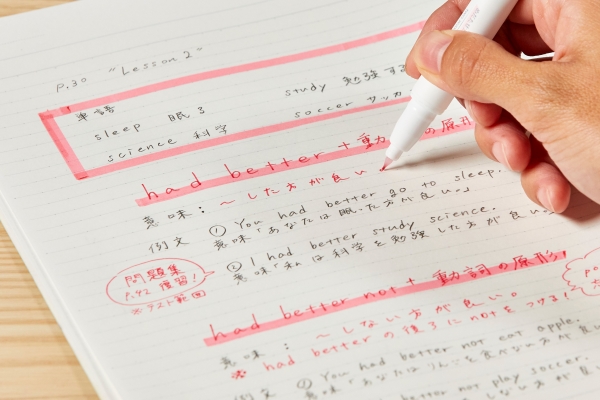 P.30 "Lesson 2"
単語
sleep 眠る study 勉強する
science 科学 soccer サッカ
had better + 動 の原形
意味： 〜した方が良い
例文 ① You had better go to sleep.
意味「あなたは眠った方が良い。」
② I had better study science.
意味「私は科学を勉強した方が良い。」
問題集
P.42 復習！
※テスト範囲
had better not + 動詞の原形
意味： 〜しない方が良い。
※ had better の後ろに not をつける！
例文 ① You had better not eat apple.
意味「あなたはりんごを食べない方が良い
had better not play soccer.